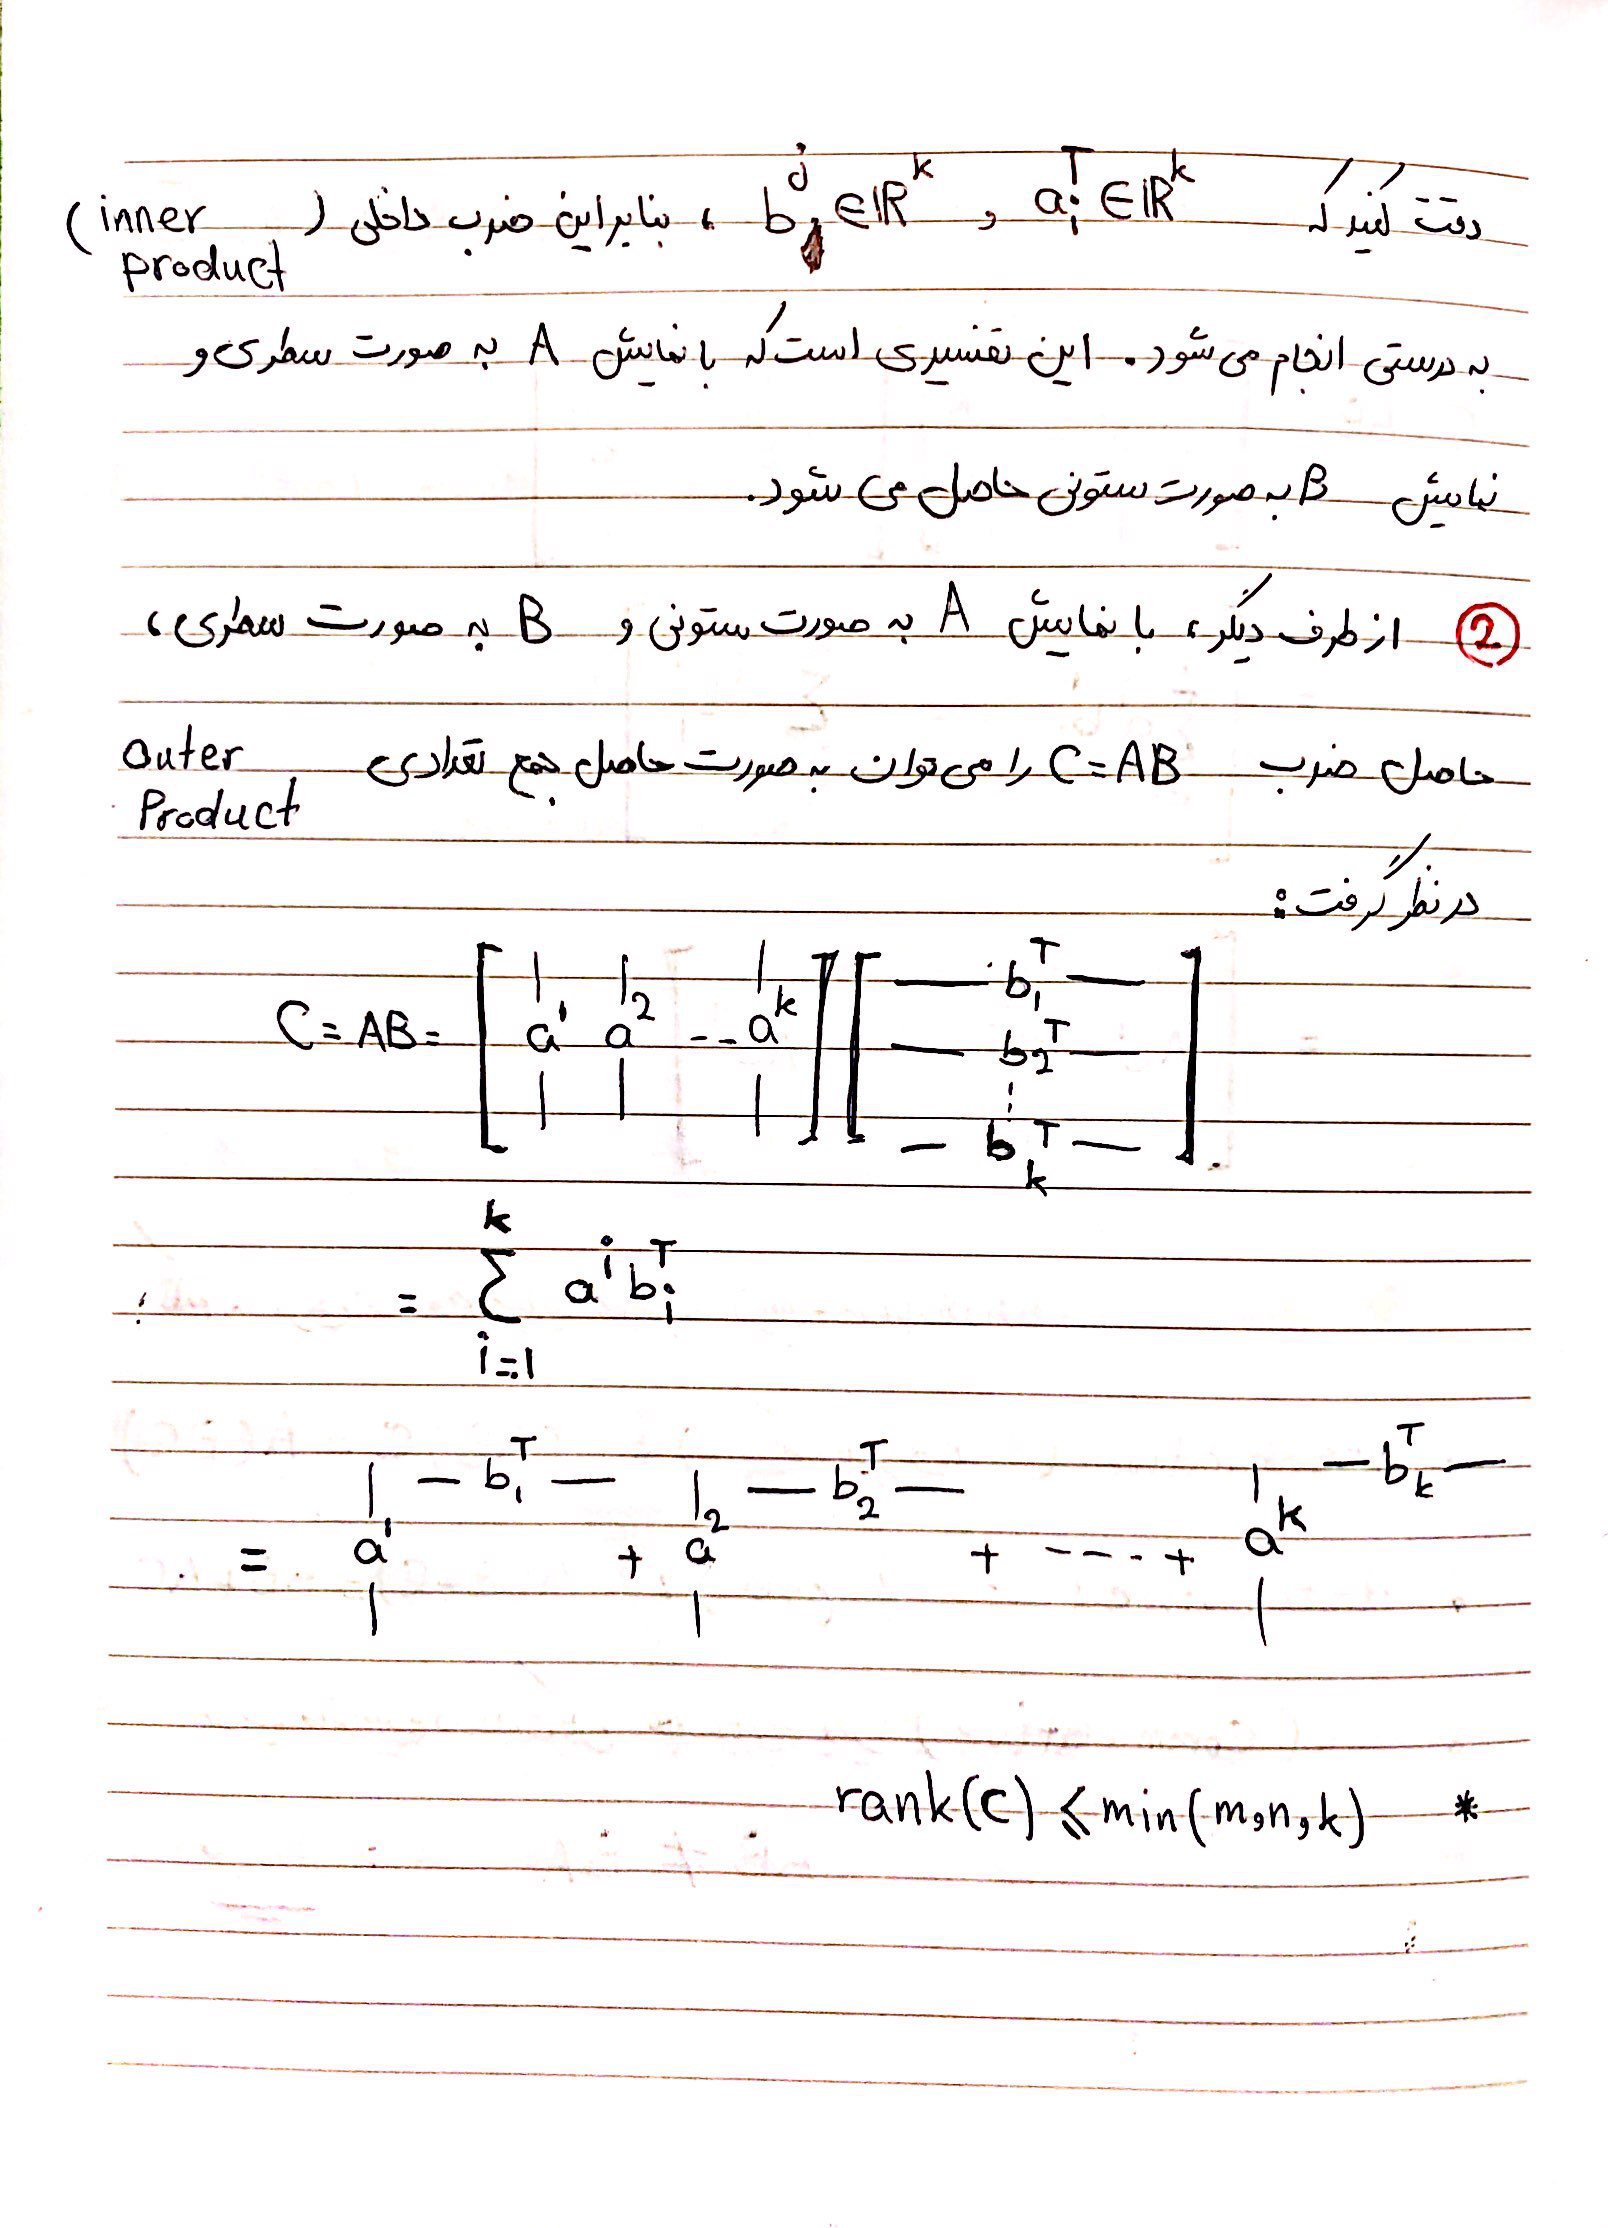 دقت کنید که a_i^T ∈ ℝ^k و b^j ∈ ℝ^k ، بنابراین ضرب داخلی (inner product)
به درستی انجام می شود. این تفسیری است که با نمایش A به صورت سطری و
نمایش B به صورت ستونی حاصل می شود.
② از طرف دیگر، با نمایش A به صورت ستونی و B به صورت سطری،
حاصل ضرب C=AB را می توان به صورت حاصل جمع تعدادی Outer Product
در نظر گرفت:
C = AB = [a^1 a^2 -- a^k] [— b_1^T — — b_2^T — ⋮ — b_k^T —]
= ∑_{i=1}^{k} a^i b_i^T
= a^1 — b_1^T — + a^2 — b_2^T — + ---- + a^k — b_k^T —
* rank(C) ⩽ min(m,n,k)